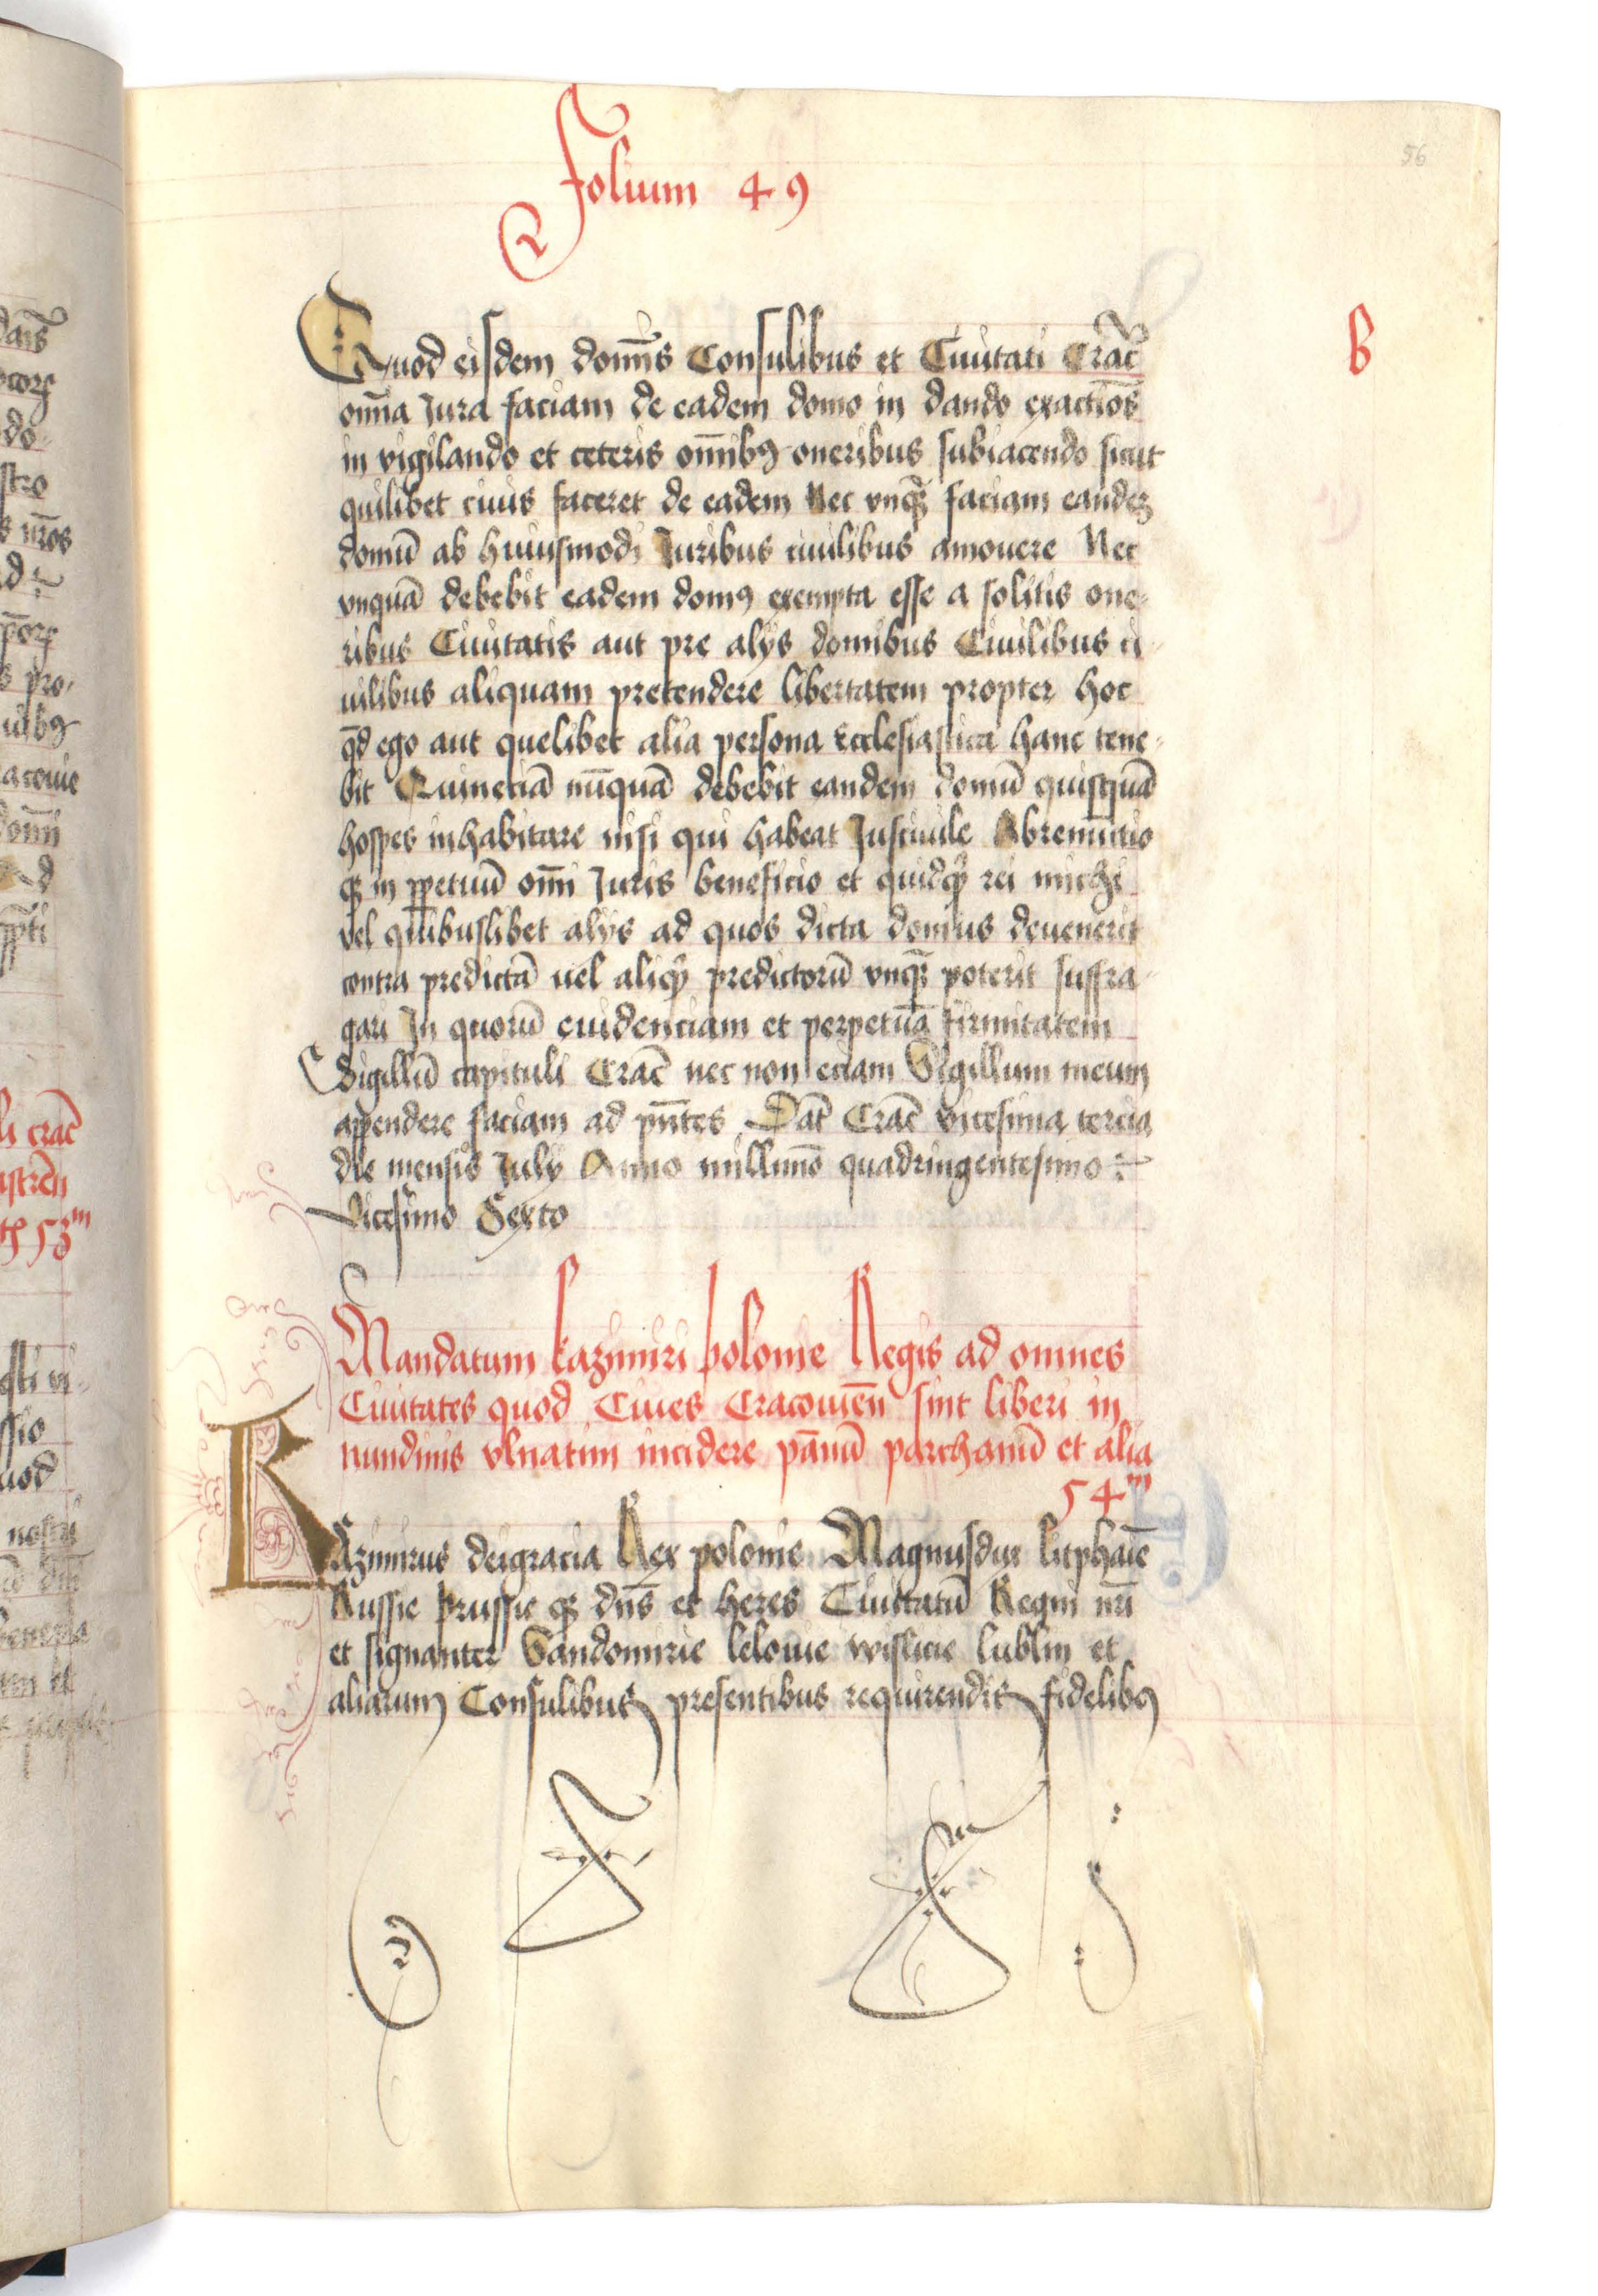 Folium 49
56
B
Quod eisdem domīs Consulibus et Ciuitati Crac̄
om̄a Jura faciam de eadem domo in dando exactiōs
in vigilando et ceteris om̄ibꝯ oneribus subiacendo sicut
quilibet ciuis faceret de eadem Nec vnqꝫ faciam eandeꝫ
domū ab huiusmodi Juribus ciuilibus amouere Nec
vnquā debebit eadem domꝯ exempta esse a solitis one-
ribus Ciuitatis aut pre alijs domibus Ciuilibus ci-
uilibus aliquam pretendere libertatem propter hoc
qd̄ ego aut quelibet alia persona Ecclesiastica hanc tene-
bit Quinetiā nūquā debebit eandem domū quisquā
hospes inhabitare nisi qui habeat Jusciuile Abrenuntio
qꝫ in ꝑpetuū om̄i Juris beneficio et quidqͥ rei michi
vel quibuslibet alijs ad quos dicta domus deuenerit
contra predictā uel aliqͥ predictorū vnqꝫ poterit suffra-
gari In quorū euidenciam et perpetuā firmitatem
Sigillū capituli Crac̄ nec non eciam Sigillum meum
appendere faciam ad pn̄tes Dat̄ Crac̄ vicesima tercia
die mensis July Anno millimō quadringentesimo
vicesimo Sexto
Mandatum kazimiri polonie Regis ad omnes
Ciuitates quod Ciues Cracouień sint liberi in
nundinis vlnatim incidere pānū parchanū et alia
54ᵐ
Kazimirus deigracia Rex polonie Magnusdux litphaīe
Russie prussie qꝫ dn̄s et heres Ciuitatū Regni nr̄i
et signanter Sandomirie lelouie wislicie lublin et
aliarum Consulibus presentibus requirendis fidelibꝯ